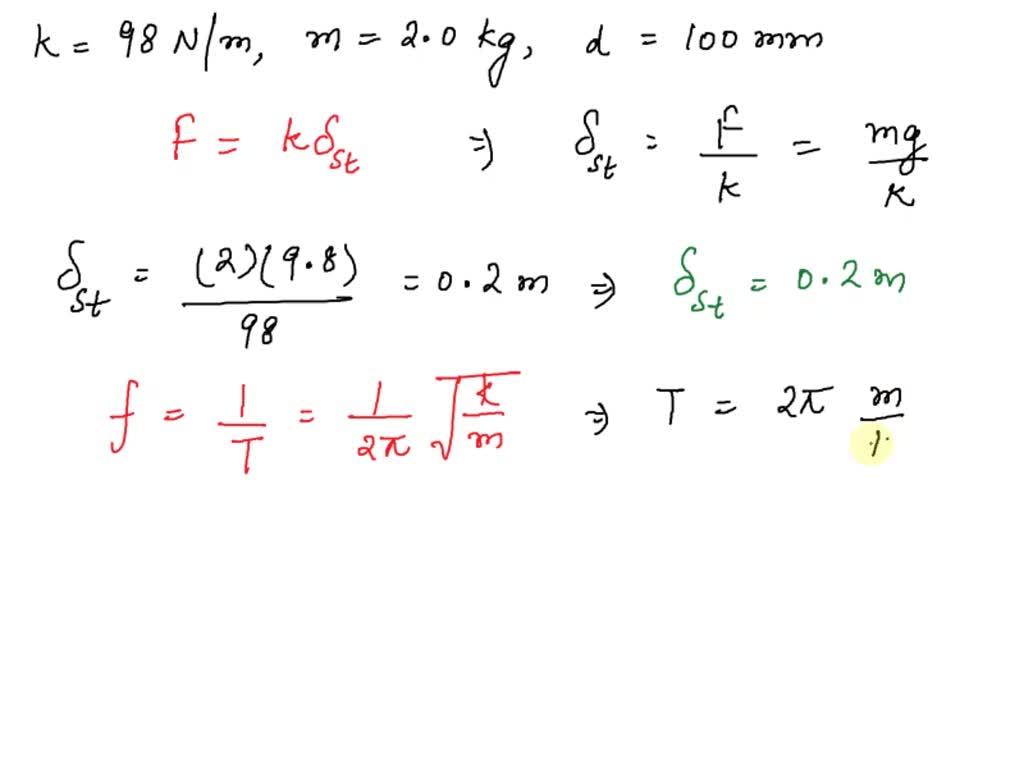 k = 98 N/m, m = 2.0 kg, d = 100 mm
F = kδst ⇒ δst = F/k = mg/k
δst = (2)(9.8)/98 = 0.2 m ⇒ δst = 0.2 m
f = 1/T = 1/2π √k/m ⇒ T = 2π m/